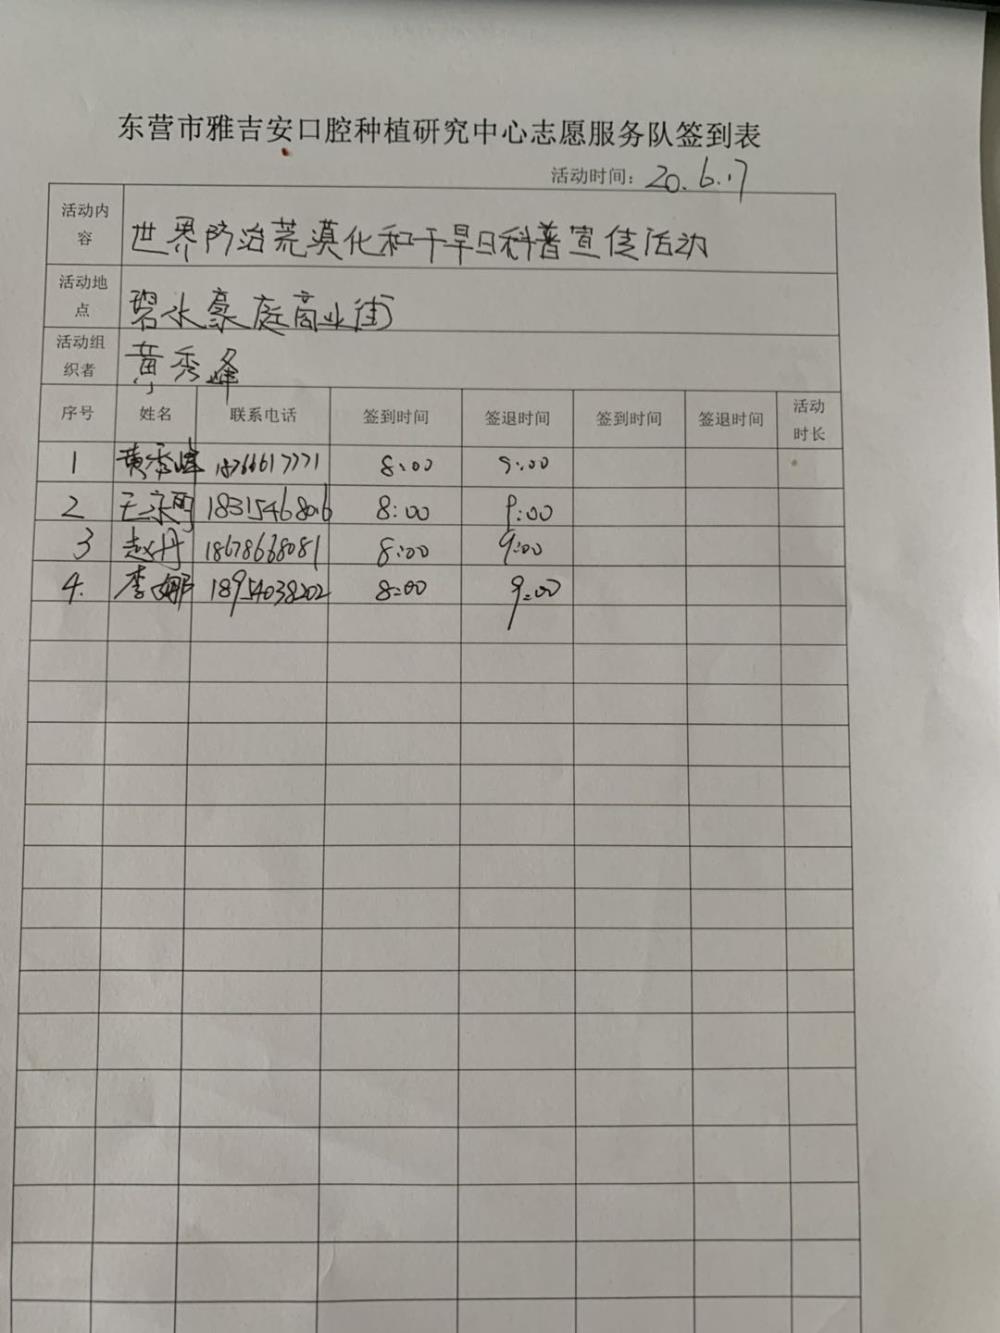 东营市雅吉安口腔种植研究中心志愿服务队签到表
活动时间：20.6.17
活动内容 世界防治荒漠化和干旱日科普宣传活动
活动地点 碧水豪庭商业街
活动组织者 黄秀峰
序号 姓名 联系电话 签到时间 签退时间 签到时间 签退时间 活动时长
1 黄秀峰 18766617771 8:00 9:00
2 王 18315468016 8:00 9:00
3 赵丹 18678668081 8:00 9:00
4. 李娜 18954038202 8:00 9:00